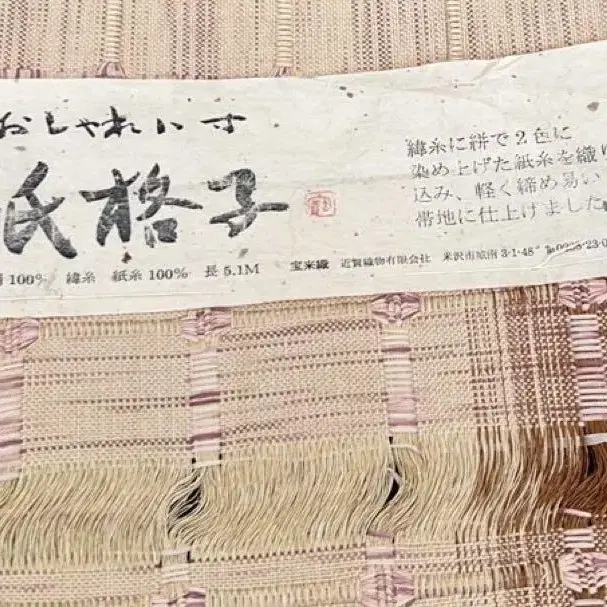 おしゃれい寸
紙格子
緯糸に絣で2色に
染め上げた紙糸を織り
込み、軽く締め易い
帯地に仕上げました
100% 緯糸 紙糸100% 長5.1M 宝来織 近賢織物有限会社 米沢市底南3-1-48